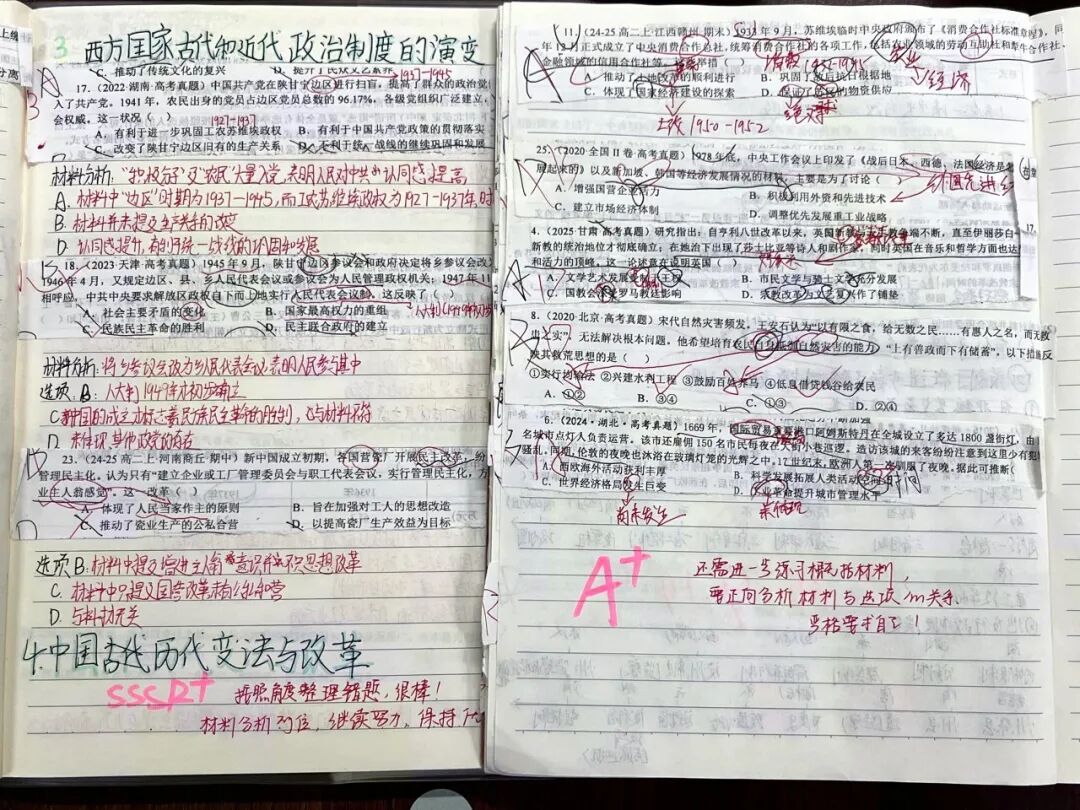 3 西方国家古代和近代政治制度的演变
C. 推动了传统文化的复兴
1937-1945
17. (2022·湖南·高考真题) 中国共产党在陕甘宁边区进行扫盲，提高了群众的政治觉
入了共产党。1941年，农民出身的党员占边区党员总数的96.17%。各级党组织广泛建立，
会权威。这一状况（ ）
1927-1937
A. 有利于进一步巩固工农苏维埃政权 B. 有利于中国共产党政策的贯彻落实
C. 改变了陕甘宁边区旧有的生产关系 D. 不利于统一战线的继续巩固和发展
材料分析：
A. 材料中"边区"时期为1937-1945，而工农苏维埃政权为1927-1937年时
B. 材料并未提及生产关系的改变
D. 认同感提升，有利于统一战线的巩固和发展
18. (2023·天津·高考真题) 1945年9月，陕甘宁边区参议会和政府决定将乡参议会改
1946年4月，又规定边区、县、乡人民代表会议或参议会为人民管理政权机关；1947年11
相呼应，中共中央要求解放区政权自下而上地实行人民代表会议制。这反映了（ ）
A. 社会主要矛盾的变化 B. 国家最高权力的重组
C. 民族民主革命的胜利 D. 民主联合政府的建立
材料分析：将乡参议会改为乡人民代表会议表明人民参与其中
选项：B. 人大制1949年才初步确立
C. 新中国的成立才标志着民族民主革命的胜利，C与材料不符
D. 未体现其他政党的存在
23. (24-25高二上·河南商丘·期中) 新中国成立初期，各国营瓷厂开展民主改革，
管理民主化，认为只有"建立企业或工厂管理委员会与职工代表会议，实行管理民主化，
业主人翁感觉"。这一改革（ ）
A. 体现了人民当家作主的原则 B. 旨在加强对工人的思想改造
C. 推动了瓷业生产的公私合营 D. 以提高瓷厂生产效益为目标
选项B：材料中提及增进主人翁意识而不仅思想改革
C. 材料中只提及国营改革未有公私合营
D. 与材料无关
4.中国古代历代变法与改革
SSSP+
按照角度整理错题，很棒！
材料分析到位，继续努力，保持
11. (24-25高二上·江西赣州·期末) 1933年9月，苏维埃临时中央政府颁布了《消费合作社标准章程》，同
年12月正式成立了中央消费合作总社，统筹消费合作社的各项工作，包括农业领域的劳动互助社和犁牛合作社，
金融领域的信用合作社等，举措（ ）
A. 推动了土地改革的顺利进行 B. 巩固了敌后抗日根据地
C. 体现了国家经济建设的探索 D. 保证了居民的物资供应
经济
土改 1950-1952
绝对
25. (2020·全国II卷·高考真题) 1978年底，中央工作会议上印发了《战后日本、西德、法国经济是怎
展起来的》以及新加坡、韩国等经济发展情况的材料，主要是为了讨论（ ）
A. 增强国营企业活力 B. 积极利用外资和先进技术
C. 建立市场经济体制 D. 调整优先发展重工业战略
4. (2025·甘肃·高考真题) 研究指出：自亨利八世改革以来，英国新教争端不断，直至伊丽莎白
新教的统治地位才彻底确立，在她治下出现了莎士比亚等诗人和剧作家，同时英国在音乐和哲学方面也达
和活力的顶峰。这一论述意在说明英国（ ）
A. 文学艺术发展受制 B. 市民文学与骑士文学充分发展
C. 国教会受罗马教廷影响 D. 宗教改革为文艺复兴作了铺垫
8. (2020·北京·高考真题) 宋代自然灾害频发，王安石认为"以有限之食，给无数之民……有惠人之名，而无救
患之实"，无法解决根本问题。他希望培育农民自身抵御自然灾害的能力，"上有善政而下有储蓄"。以下措施反
映其救荒思想的是（ ）
①实行均输法 ②兴建水利工程 ③鼓励百姓养马 ④低息借贷钱谷给农民
A. ①② B. ③④ C. ①③ D. ②④
6. (2024·湖北·高考真题) 1669年，国际贸易重要港口阿姆斯特丹在全城设立了多达1800盏街灯，由
名城市点灯人负责运营。该市还雇佣150名市民每夜在大街小巷巡逻。造访该城的来客纷纷注意到这里少有犯
骚乱。同期，伦敦的夜晚也沐浴在玻璃灯笼的光辉之中。17世纪末，欧洲人第一次驯服了夜晚。据此可推断（ ）
A. 西欧海外活动获利丰厚 B. 科学发展拓展人类活动空间 时间
C. 世界经济格局发生巨变 D. 工业革命提升城市管理水平
尚未发生
A+
还需进一步练习概括材料，
要正向分析材料与选项的关系，
严格要求自己！